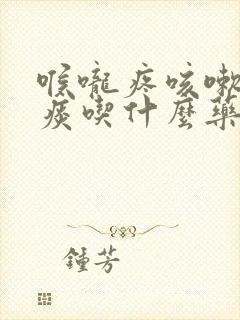 喉嚨疼咳嗽
痰喫什麼藥
鍾芳